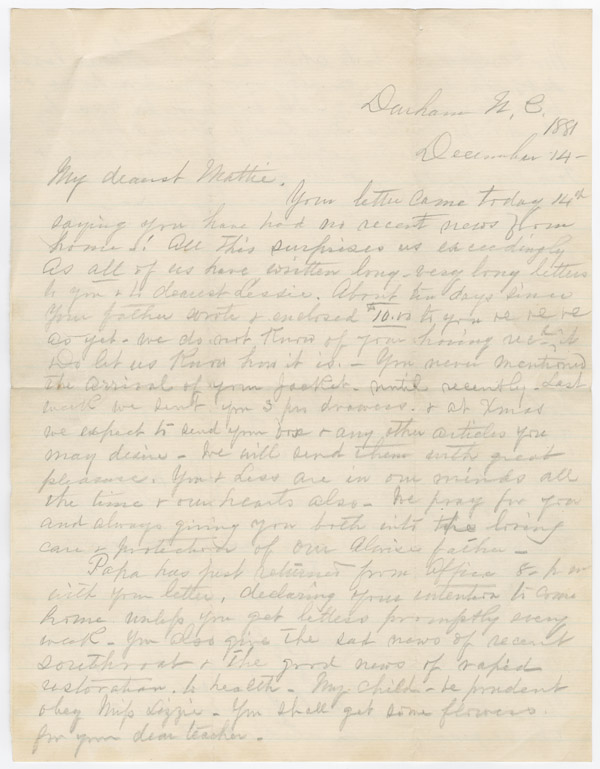 Durham N. C.
1881
December 14 -
My dearest Mattie.
Your letter came today 14th
saying you have had no recent news from
home -! All this surprises us exceedingly
As all of us have written long - very long letters
to you & to dearest Lessie. About ten days since
Your father wrote & enclosed $10.00 to you
as yet - we do not know of your having rec
Do let us know how it is. - You never mentioned
the arrival of your jacket - until recently. Last
week we sent you 3 prs drawers. & at Xmas
we expect to send your box & any other articles you
may desire - We will send them with great
pleasure. You & Less are in our minds all
the time & our hearts also - We pray for you
and always giving you both into the loving
care & protection of our father -
Papa has just returned from Office 8 - p m
with your letter, declaring your intention to come
home unless you get letters promptly every
week - You also give the sad news of recent
sorethroat & the good news of rapid
restoration. to health - My child - be prudent
obey Miss Lizzie - You shall get some flowers
for your dear teacher -